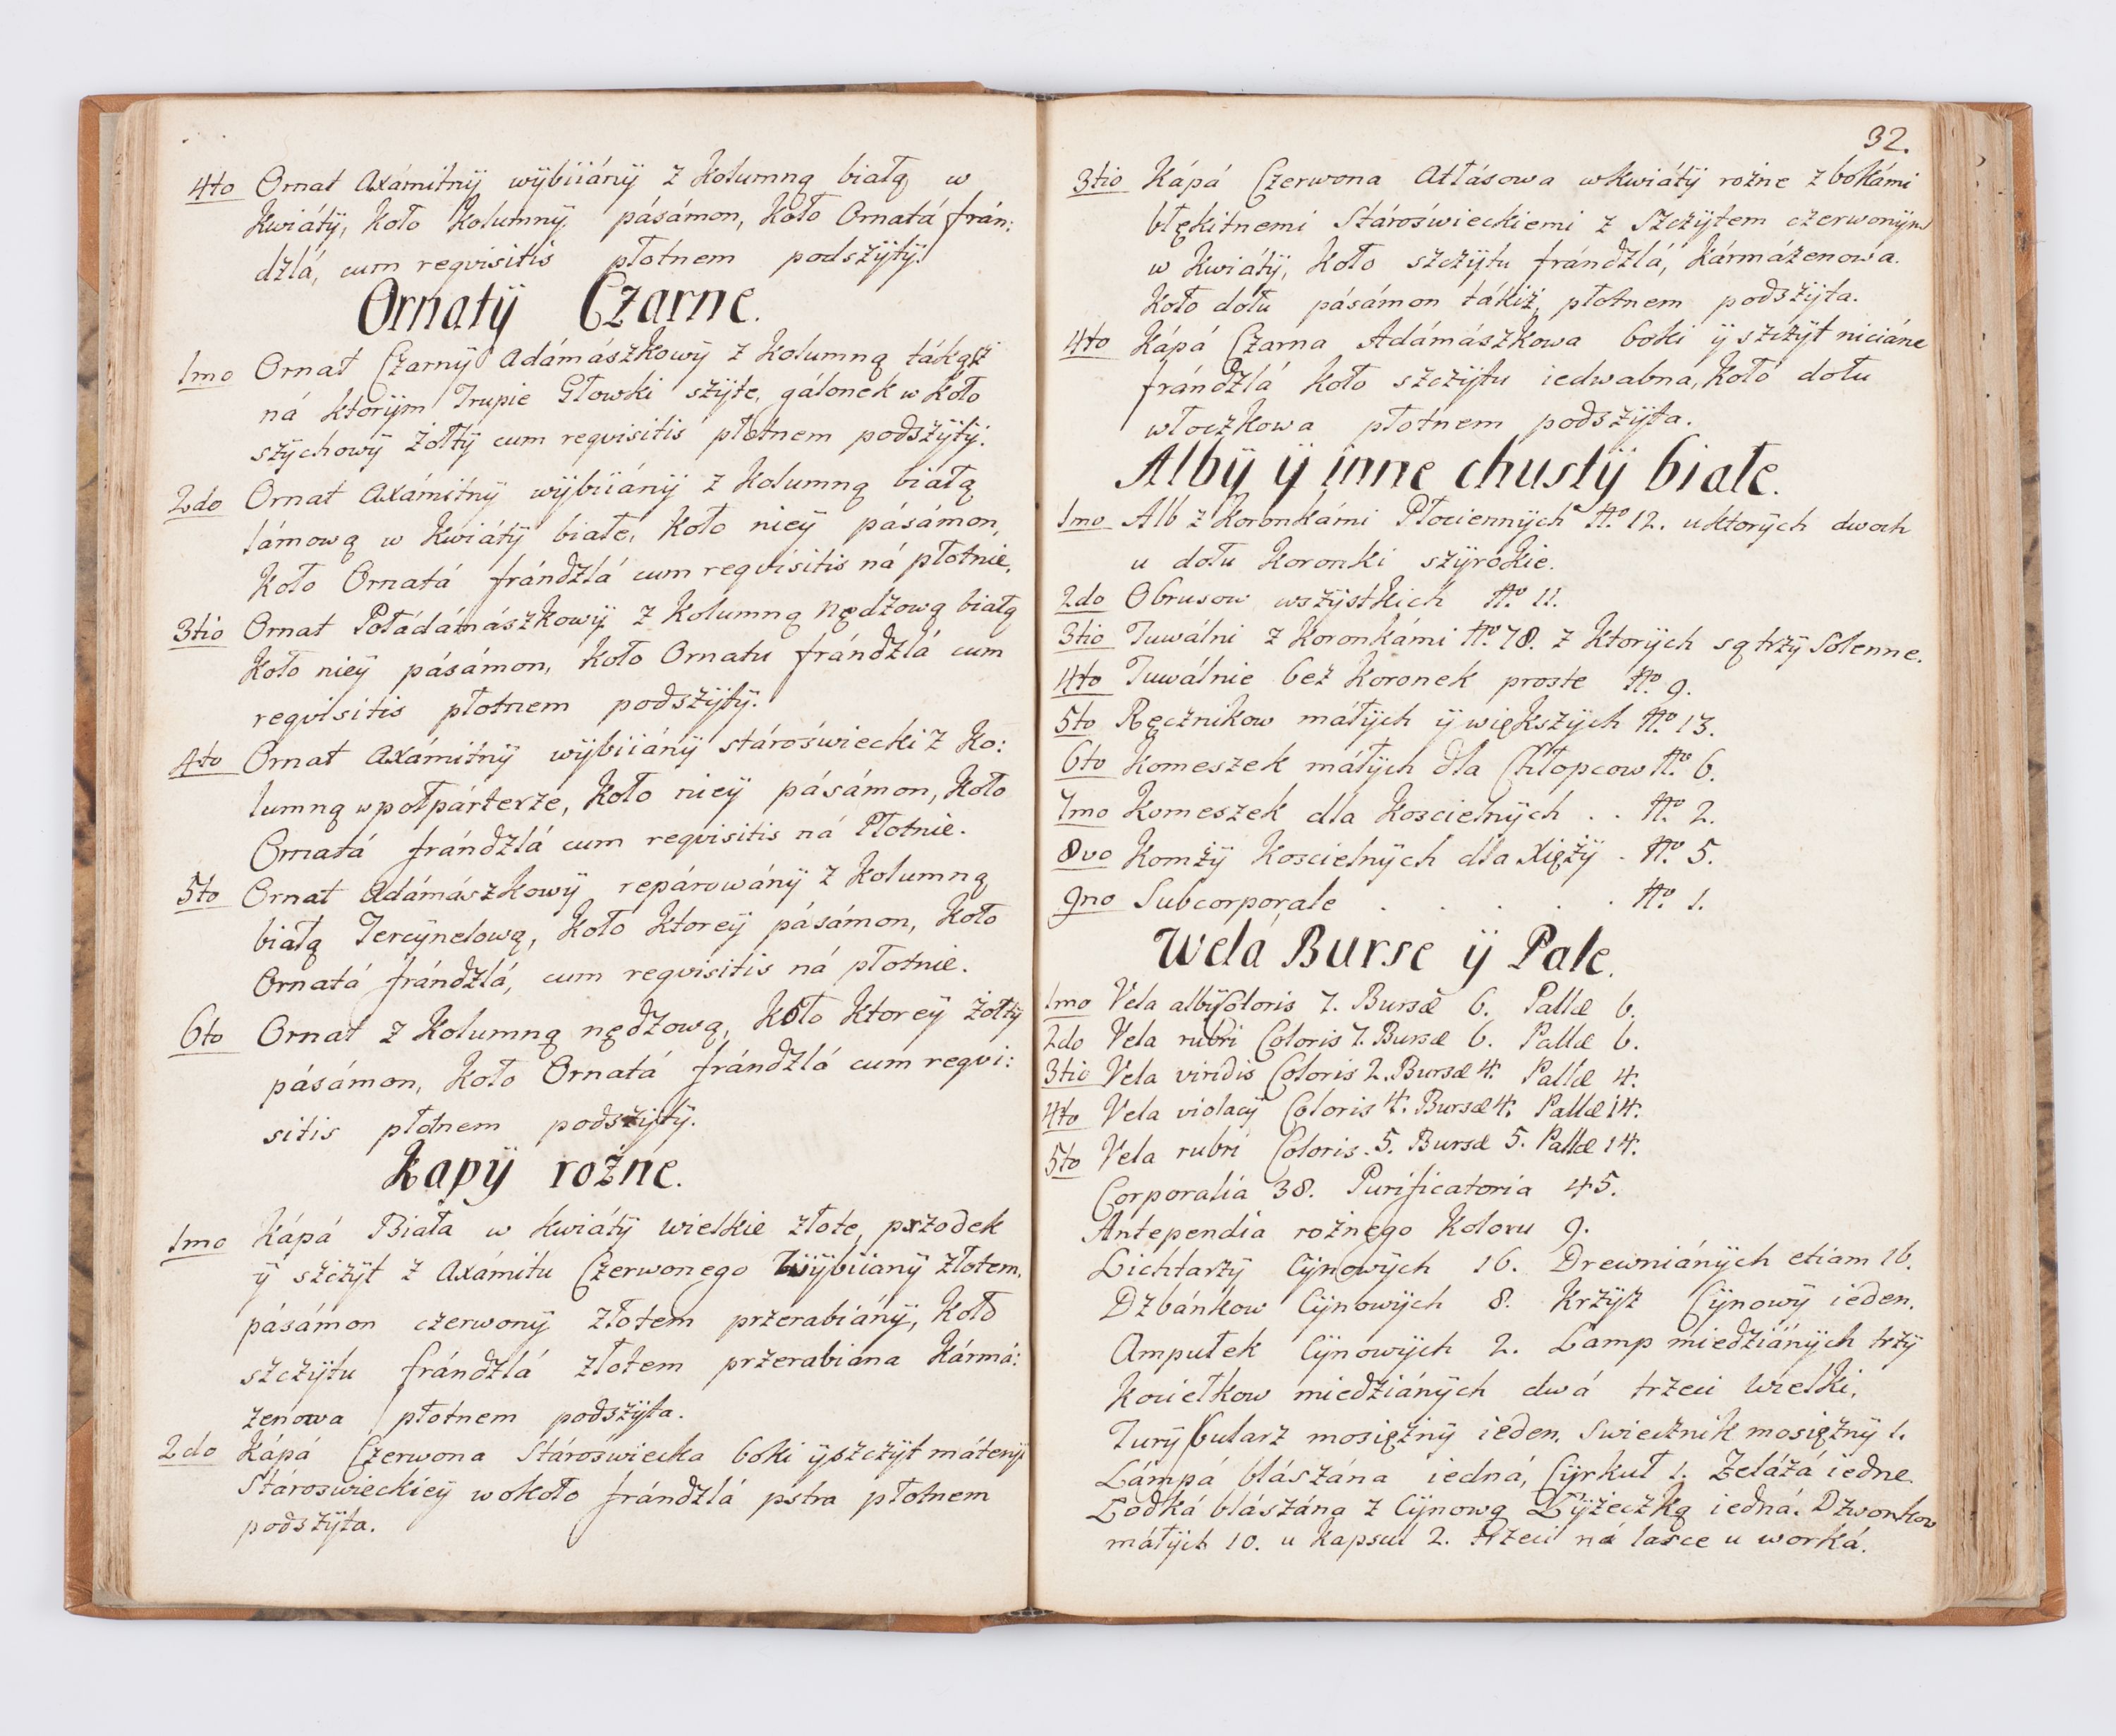 4to Ornat Axámitnÿ wÿbiiánÿ z kolumną białą w
kwiátÿ, koło kolumnÿ pásámon, koło Ornatá frán:
dzlá, cum reqvisitis płotnem podszÿtÿ.
Ornatÿ Czarne.
1mo Ornat Czarnÿ Adámászkowÿ z kolumną tákąż
ná ktorÿm Trupie Głowki szÿte, gálonek w koło
szÿchowÿ żołtÿ cum reqvisitis płotnem podszÿtÿ.
2do Ornat Axámitnÿ wÿbiiánÿ z kolumną białą
lámową w kwiátÿ białe, koło nieÿ pásámon,
koło Ornatá frándzlá cum reqvisitis ná płotnie.
3tio Ornat Połádámászkowÿ z kolumną nędzową białą
koło nieÿ pásámon, koło Ornatu frándzlá cum
reqvisitis płotnem podszÿtÿ.
4to Ornat Axámitnÿ wÿbiiánÿ stároświecki z ko:
lumną w połpárterze, koło nieÿ pásámon, koło
Ornatá frándzlá cum reqvisitis ná Płotnie.
5to Ornat Adámászkowÿ repárowánÿ z kolumną
białą Tercÿnelową, koło ktoreÿ pásámon, koło
Ornatá frándzlá, cum reqvisitis ná płotnie.
6to Ornat z kolumną nędzową, koło ktoreÿ żołtÿ
pásámon, koło Ornatá frándzlá cum reqvi:
sitis płotnem podszÿtÿ.
Kapÿ rożne.
1mo Kápá Biała w kwiátÿ wielkie złote, przodek
ÿ szczÿt z Axámitu Czerwonego Wÿbiianÿ złotem,
pásámon czerwonÿ złotem przerabiánÿ, koło
szczÿtu frándzlá złotem przerabiana kármá:
zenowa płotnem podszÿta.
2do Kápá Czerwona Stároświecka boki ÿ szczÿt máterÿi
Stároświeckieÿ wokoło frándzlá pstra płotnem
podszÿta.
32.
3tio Kápá Czerwona Atłásowa w kwiátÿ rożne z bokámi
błękitnemi Stároświeckiemi z Szczÿtem czerwonÿm
w kwiátÿ, koło szczÿtu frándzlá, kármázenowa.
koło dołu pásámon tákiż, płotnem podszÿta.
4to Kápá Czarna Adámászkowa boki ÿ szczÿt niciáne
frándzlá koło szczÿtu iedwabna, koło dołu
włoczkowa płotnem podszÿta.
Albÿ ÿ inne chustÿ białe.
1mo Alb z koronkámi Płociennÿch No 12. u ktorÿch dwoch
u dołu koronki szÿrokie.
2do Obrusow wszÿstkich No 11.
3tio Tuwálni z koronkámi No 78. z ktorÿch są trzÿ Solenne.
4to Tuwálnie bez koronek proste No 9.
5to Ręcznikow máłÿch ÿ większÿch No 13.
6to Komeszek máłÿch dla Chłopcow No 6.
7mo Komeszek dla koscielnÿch . . No 2.
8vo Komżÿ koscielnÿch dla Xiężÿ . No 5.
9no Subcorporale . . . . . No 1.
Wela Burse ÿ Pale.
1mo Vela albÿ Coloris 7. Bursæ 6. Pallæ 6.
2do Vela rubri Coloris 7. Bursæ 6. Pallæ 6.
3tio Vela viridis Coloris 2. Bursæ 4. Pallæ 4.
4to Vela violacÿ Coloris 4. Bursæ 4. Pallæ 14.
5to Vela rubri Coloris. 5. Bursæ 5. Pallæ 14.
Corporalia 38. Purificatoria 45.
Antependia rożnego koloru 9.
Lichtarzÿ Cÿnowÿch 16. Drewniánÿch etiam 16.
Dzbánkow Cÿnowÿch 8. Krzÿż Cÿnowÿ ieden.
Ampułek Cÿnowÿch 2. Lamp miedziánÿch trzÿ
kociełkow miedziánÿch dwá trzeci Wielki,
Turÿbularz mosiężnÿ ieden. Swiecznik mosiężnÿ 1.
Lámpá blászána iedná, Cÿrkuł 1. Żelázá iedne
Łodká blászána z Cÿnową Łÿżeczką iedná. Dzwonkow
máłÿch 10. u kapsul 2. trzeci ná lasce u worká.